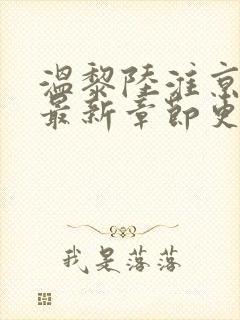 温黎陆淮京
最新章节更
我是落落